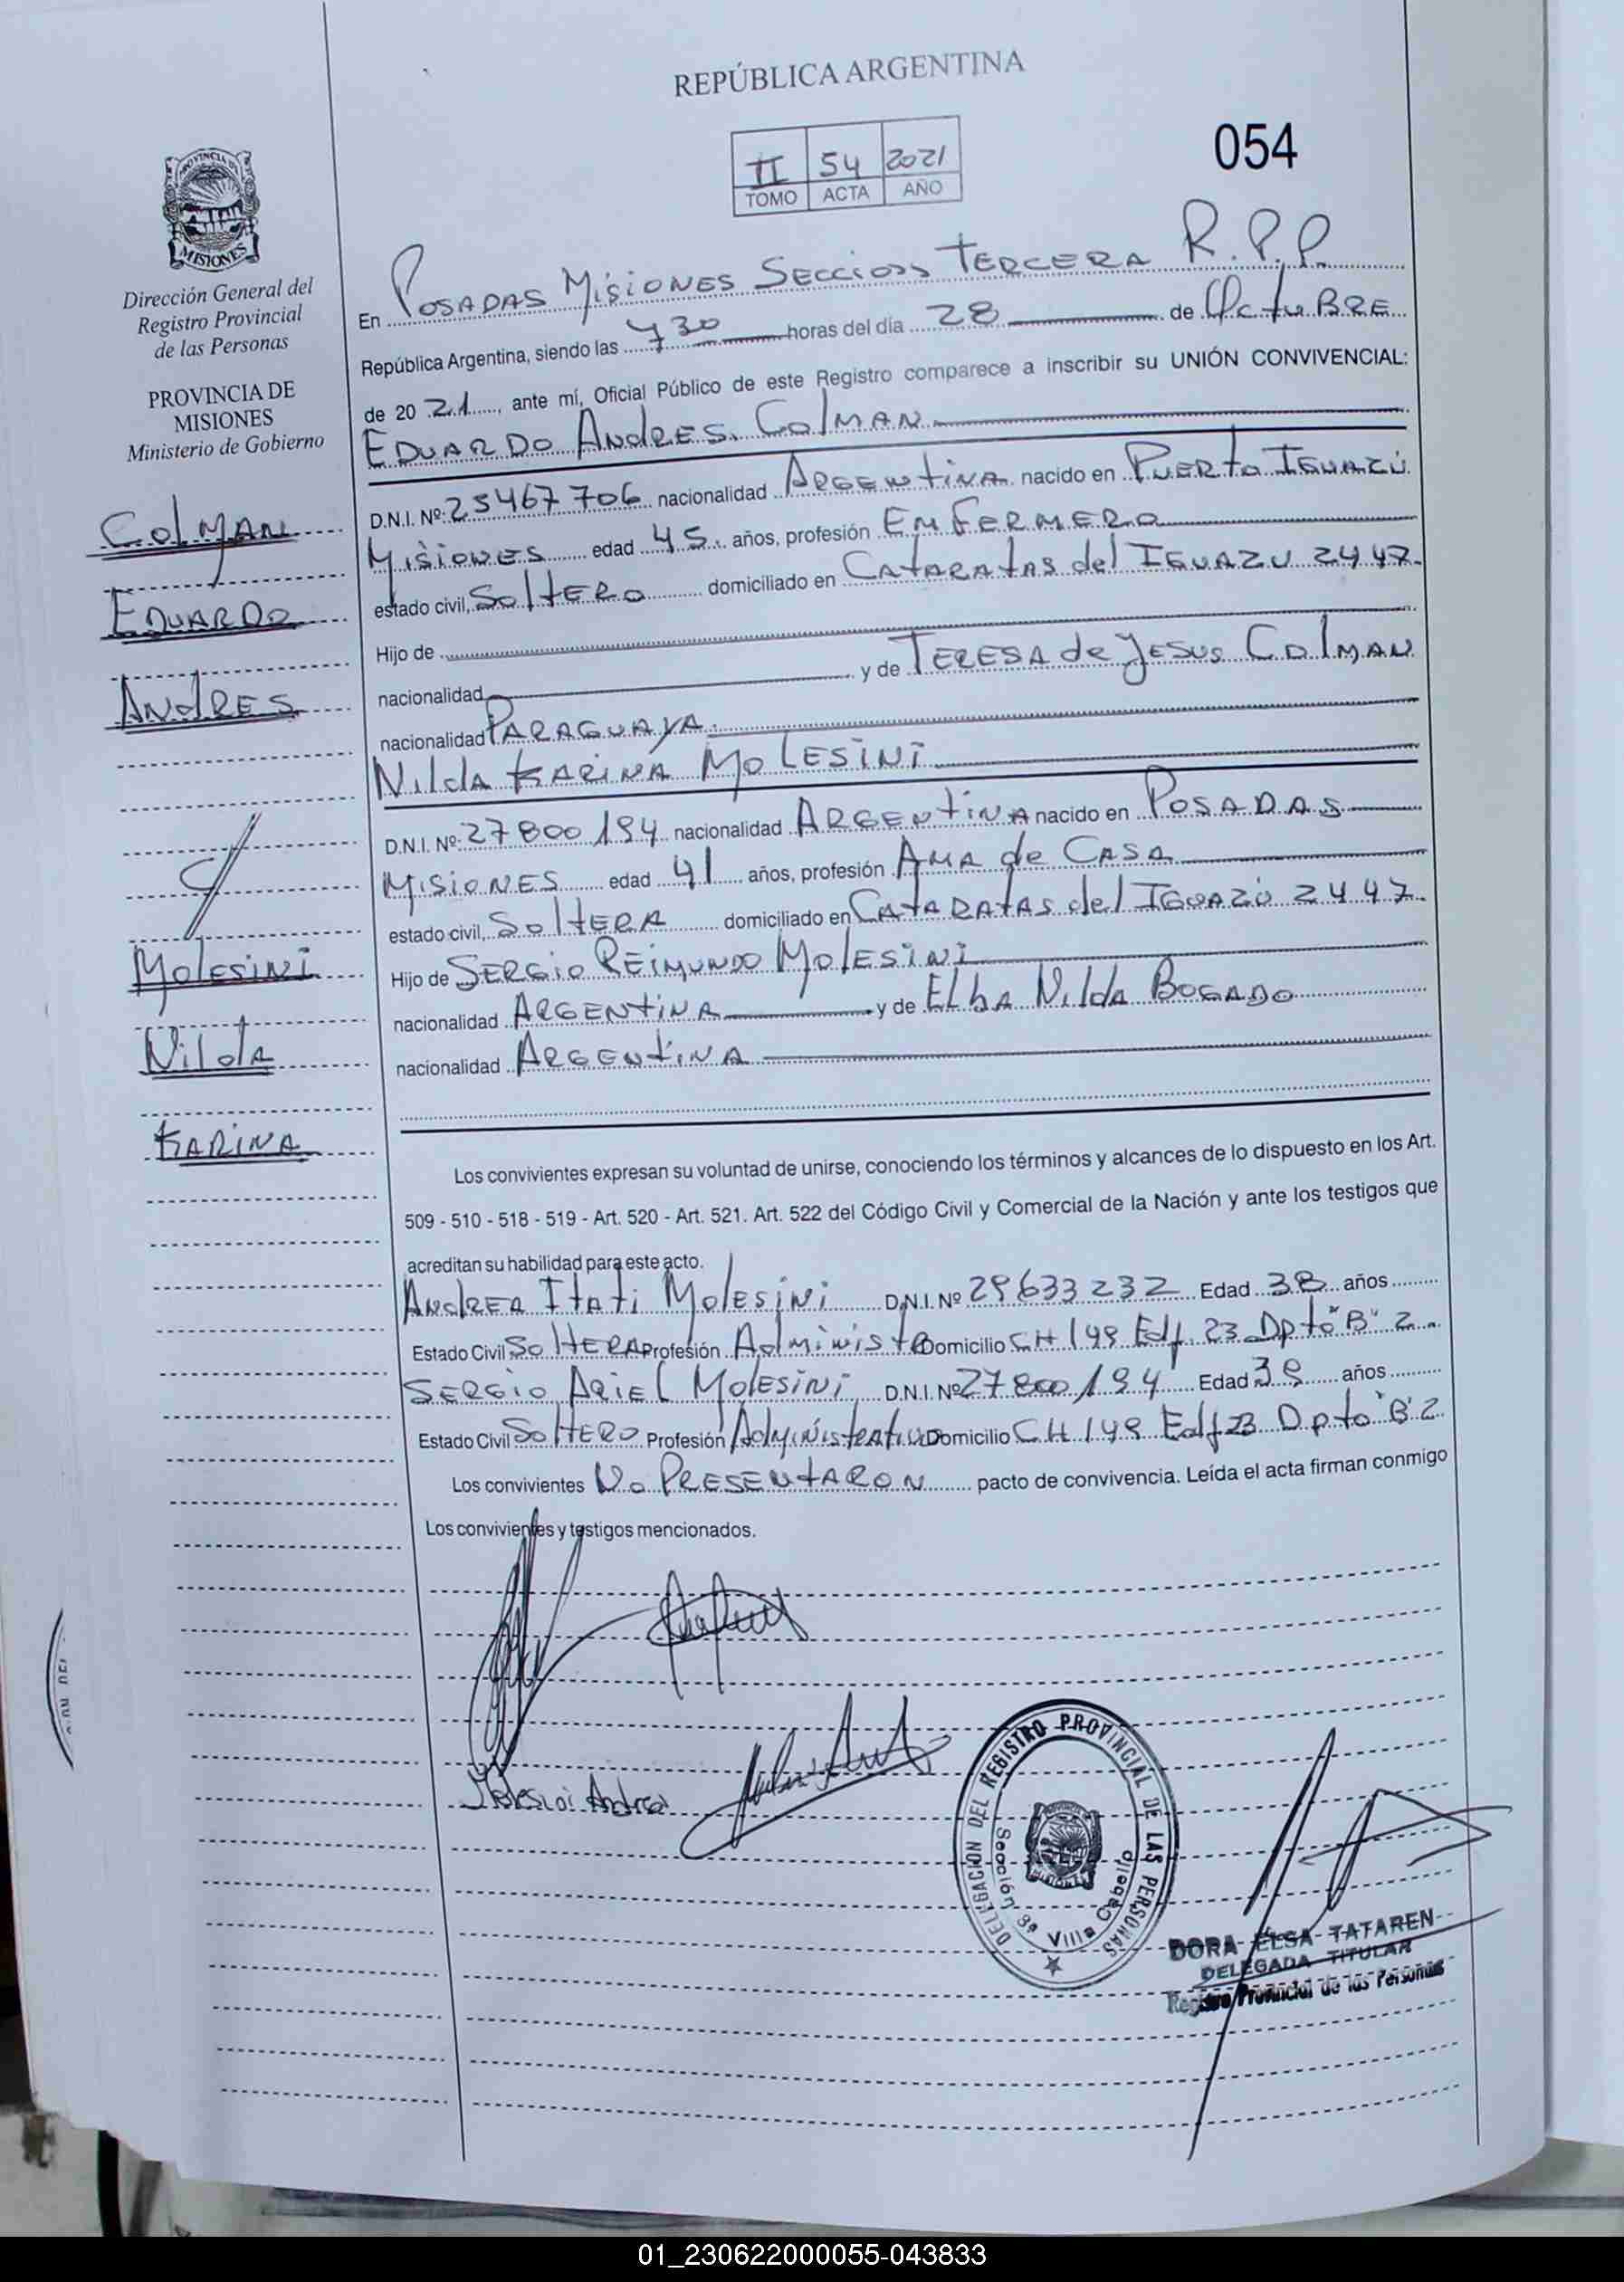 REPÚBLICA ARGENTINA
II 54 2021
TOMO ACTA AÑO
054
PROVINCIA DE
MISIONES
Dirección General del
Registro Provincial
de las Personas
PROVINCIA DE
MISIONES
Ministerio de Gobierno
Colman
Eduardo
Andres
Molesini
Nilda
Karina
En Posadas Misiones Seccion Tercera R.P.P.
República Argentina, siendo las 730 horas del día 28 de Octubre
de 20 21, ante mí, Oficial Público de este Registro comparece a inscribir su UNIÓN CONVIVENCIAL:
Eduardo Andres Colman
D.N.I. Nº: 25467706 nacionalidad Argentina nacido en Puerto Iguazú
Misiones edad 45 años, profesión Enfermero
estado civil, Soltero domiciliado en Cataratas del Iguazu 2447
Hijo de
nacionalidad y de Teresa de Jesus Colman
nacionalidad Paraguaya
Nilda Karina Molesini
D.N.I. Nº: 27800194 nacionalidad Argentina nacido en Posadas
Misiones edad 41 años, profesión Ama de Casa
estado civil, Soltera domiciliado en Cataratas del Iguazú 2447
Hijo de Sergio Reimundo Molesini
nacionalidad Argentina y de Elba Nilda Bogado
nacionalidad Argentina
Los convivientes expresan su voluntad de unirse, conociendo los términos y alcances de lo dispuesto en los Art.
509 - 510 - 518 - 519 - Art. 520 - Art. 521. Art. 522 del Código Civil y Comercial de la Nación y ante los testigos que
acreditan su habilidad para este acto.
Andrea Itati Molesini D.N.I. Nº 29633232 Edad 38 años
Estado Civil Soltera Profesión Administ Domicilio CH 149 Edf. 23 Dpto "B" 2
Sergio Ariel Molesini D.N.I. Nº 27800194 Edad 39 años
Estado Civil Soltero Profesión Administrativo Domicilio CH 149 Edf 23 Dpto "B" 2
Los convivientes No Presentaron pacto de convivencia. Leída el acta firman conmigo
Los convivientes y testigos mencionados.
Molesini Andrea
DELEGACION DEL REGISTRO PROVINCIAL DE LAS PERSONAS
Sección 3ª Villa Cabello
DORA ELSA TATAREN
DELEGADA TITULAR
Registro Provincial de las Personas
01_230622000055-043833